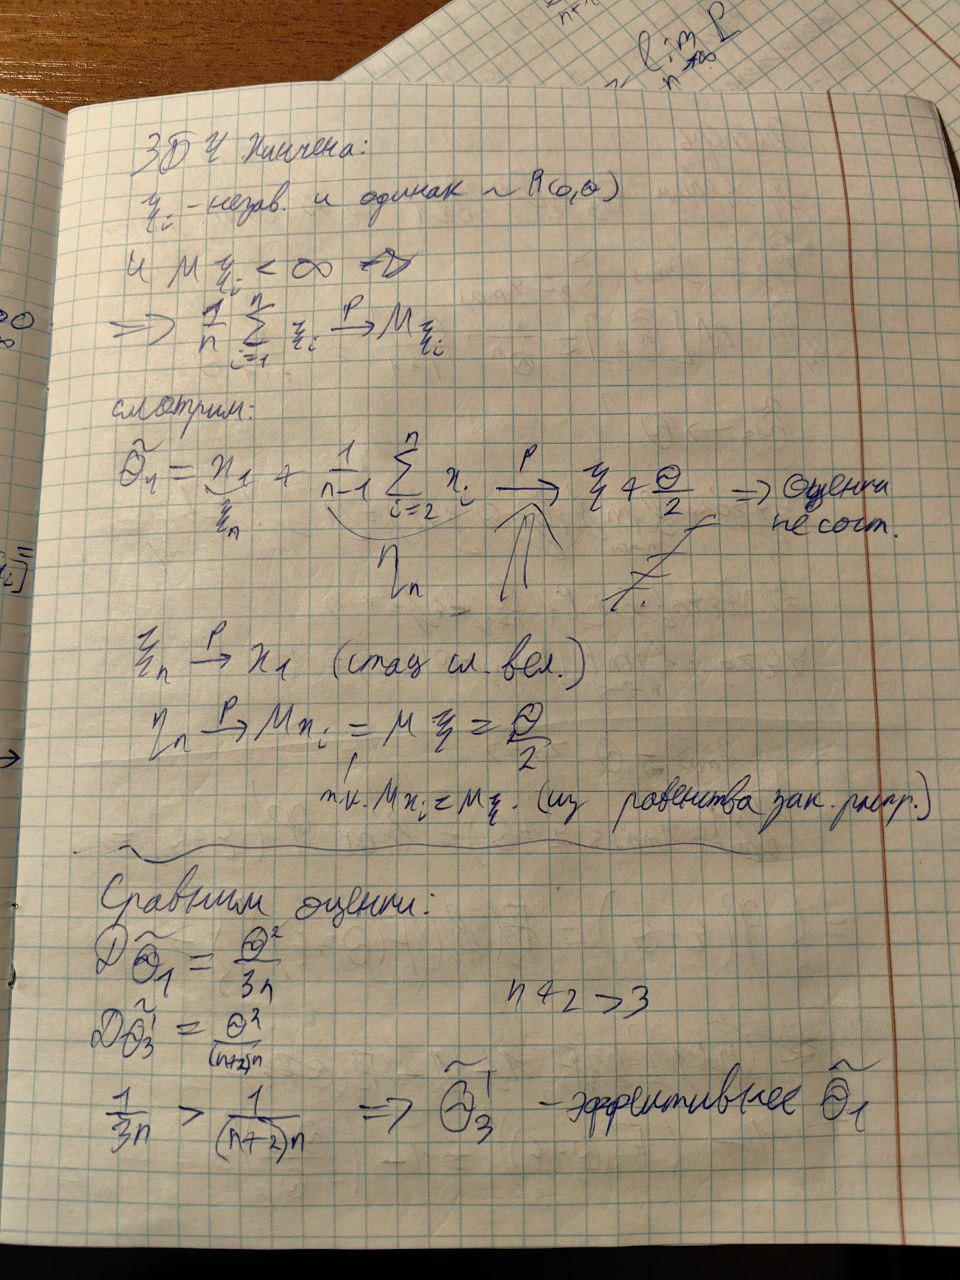 n+1
lim P
n→∞
ЗБЧ Хинчена:
ξᵢ - незав. и одинак ~ R(0,θ)
и Mξᵢ < ∞
=> 1/n Σᵢ₌₁ⁿ ξᵢ →ᴾ Mξᵢ
смотрим:
θ̃₄ = x₁ + 1/(n-1) Σᵢ₌₂ⁿ xᵢ →ᴾ ξ + θ/2 => Оценка
не сост.
ξₙ ηₙ
ξₙ →ᴾ x₁ (стац сл. вел.)
ηₙ →ᴾ Mxᵢ = Mξ = θ/2
т.к. Mxᵢ = Mξ. (из равенства зак. распр.)
Сравним оценки:
Dθ̃₁ = θ²/3n
n+2 > 3
Dθ̃₃' = θ²/(n+2)n
1/3n > 1/(n+2)n => θ̃₃' - эффективнее θ̃₁